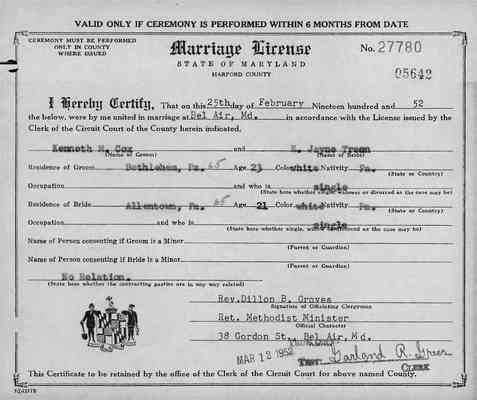 VALID ONLY IF CEREMONY IS PERFORMED WITHIN 6 MONTHS FROM DATE
CEREMONY MUST BE PERFORMED
ONLY IN COUNTY
WHERE ISSUED
Marriage License
STATE OF MARYLAND
HARFORD COUNTY
No. 27780
05642
I Hereby Certify, That on this 25th day of February Nineteen hundred and 52
the below, were by me united in marriage at Bel Air, Md. in accordance with the License issued by the
Clerk of the Circuit Court of the County herein indicated.
Kenneth M. Cox and E. Jayne
(Name of Groom) (Name of Bride)
Residence of Groom Bethlehem, Pa. 65 Age 23 Color white Nativity Pa.
(State or Country)
Occupation and who is single
(State here whether single, widower or divorced as the case may be)
Residence of Bride Allentown, Pa. 65 Age 21 Color white Nativity Pa.
(State or Country)
Occupation and who is single
(State here whether single, widow or divorced as the case may be)
Name of Person consenting if Groom is a Minor
(Parent or Guardian)
Name of Person consenting if Bride is a Minor
(Parent or Guardian)
No Relation.
(State here whether the contracting parties are in any way related)
Rev. Dillon B. Groves
Signature of Officiating Clergyman
Ret. Methodist Minister
Official Character
38 Gordon St., Bel Air, Md.
MAR 12 1952
Test: Garland R. Greer
CLERK
This Certificate to be retained by the office of the Clerk of the Circuit Court for above named County.